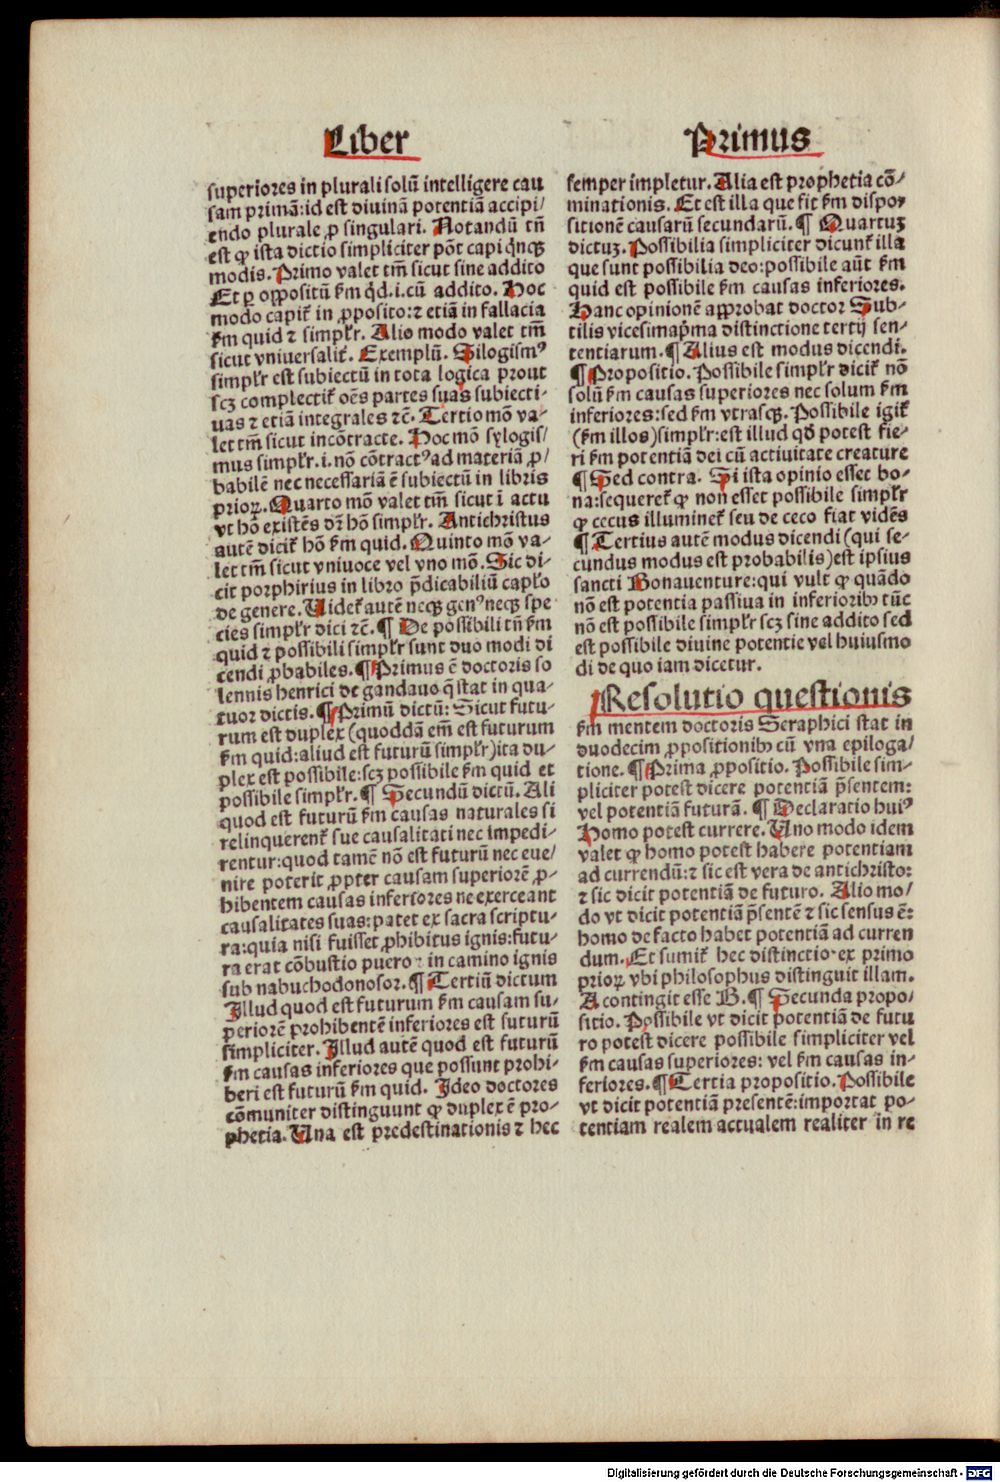 Liber Primus
superiores in plurali solū intelligere cau
sam primā:id est diuinā potentiā accipi/
endo plurale ꝓ singulari. Notandū tñ
est ꝙ ista dictio simpliciter pōt capi q̈nqꝫ
modis. Primo valet tm̄ sicut sine addito
Et ꝑ oppositū ẜm qd̄.i.cū addito. Hoc
modo capit᷑ in ꝓposito:⁊ etiā in fallacia
ẜm quid ⁊ simplr̄. Alio modo valet tm̄
sicut vniuersalit᷑. Exemplū. Silogismꝰ
simplr̄ est subiectū in tota logica prout
scꝫ complectit᷑ oēs partes suas subiecti-
uas ⁊ etiā integrales ⁊c̄. Tertio mō va-
let tm̄ sicut incōtracte. Hoc mō sylogis/
mus simplr̄.i.nō cōtractꝰ ad materiā ꝓ/
babilē nec necessariā ē subiectū in libris
prioꝝ. Quarto mō valet tm̄ sicut i actu
vt hō existēs dr̄ hō simplr̄. Antichristus
autē dicit᷑ hō ẜm quid. Quinto mō va-
let tm̄ sicut vniuoce vel vno mō. Sic di-
cit porphirius in libro p̄dicabiliū caplo
de genere. Uidet᷑ autē neqꝫ genꝰ neqꝫ spe
cies simplr̄ dici ⁊c̄. ¶ De possibili tñ ẜm
quid ⁊ possibili simplr̄ sunt duo modi di
cendi ꝓbabiles. ¶ Primus ē doctoris so
lennis henrici de gandauo q̇ stat in qua-
tuor dictis. ¶ Primū dictū: Sicut futu-
rum est duplex (quoddā em̄ est futurum
ẜm quid:aliud est futurū simplr̄)ita du-
plex est possibile:scꝫ possibile ẜm quid et
possibile simplr̄. ¶ Secundū dictū. Ali
quod est futurū ẜm causas naturales si
relinquerent᷑ sue causalitati nec impedi-
rentur:quod tamē nō est futurū nec eue/
nire poterit ꝓpter causam superiorē ꝓ-
hibentem causas inferiores ne exerceant
causalitates suas:patet ex sacra scriptu-
ra:quia nisi fuisset ꝓhibitus ignis:futu-
ra erat cōbustio pueroꝝ in camino ignis
sub nabuchodonosor. ¶ Tertiū dictum
Illud quod est futurum ẜm causam su-
periorē prohibentē inferiores est futurū
simpliciter. Illud autē quod est futurū
ẜm causas inferiores que possunt prohi-
beri est futurū ẜm quid. Ideo doctores
cōmuniter distinguunt ꝙ duplex ē pro-
phetia. Una est predestinationis ⁊ hec
semper impletur. Alia est prophetia cō/
minationis. Et est illa que fit ẜm dispo-
sitionē causarū secundarū. ¶ Quartuꝫ
dictuꝫ. Possibilia simpliciter dicunt᷑ illa
que sunt possibilia deo:possibile aūt ẜm
quid est possibile ẜm causas inferiores.
Hanc opinionē approbat doctor Sub-
tilis vicesimap̄ma distinctione tertij sen-
tentiarum. ¶ Alius est modus dicendi.
¶ Propositio. Possibile simplr̄ dicit᷑ nō
solū ẜm causas superiores nec solum ẜm
inferiores:sed ẜm vtrasqꝫ. Possibile igit᷑
(ẜm illos)simplr̄:est illud qd̄ potest fie-
ri ẜm potentiā dei cū actiuitate creature
¶ Sed contra. Si ista opinio esset bo-
na:sequeret᷑ ꝙ non esset possibile simplr̄
ꝙ cecus illuminet᷑ seu de ceco fiat vidēs
¶ Tertius autē modus dicendi (qui se-
cundus modus est probabilis)est ipsius
sancti Bonauenture:qui vult ꝙ quādo
nō est potentia passiua in inferioribꝫ tūc
nō est possibile simplr̄ scꝫ sine addito sed
est possibile diuine potentie vel huiusmo
di de quo iam dicetur.
Resolutio questionis
ẜm mentem doctoris Seraphici stat in
duodecim ꝓpositionibꝫ cū vna epiloga/
tione. ¶ Prima ꝓpositio. Possibile sim-
pliciter potest dicere potentiā p̄sentem:
vel potentiā futurā. ¶ Declaratio huiꝰ
Homo potest currere. Uno modo idem
valet ꝙ homo potest habere potentiam
ad currendū:⁊ sic est vera de antichristo:
⁊ sic dicit potentiā de futuro. Alio mo/
do vt dicit potentiā p̄sentē ⁊ sic sensus ē:
homo de facto habet potentiā ad curren
dum. Et sumit᷑ hec distinctio ex primo
prioꝝ vbi philosophus distinguit illam.
A contingit esse B. ¶ Secunda propo/
sitio. Possibile vt dicit potentiā de futu
ro potest dicere possibile simpliciter vel
ẜm causas superiores: vel ẜm causas in-
feriores. ¶ Tertia propositio. Possibile
vt dicit potentiā presentē:importat po-
tentiam realem actualem realiter in re
Digitalisierung gefördert durch die Deutsche Forschungsgemeinschaft - DFG